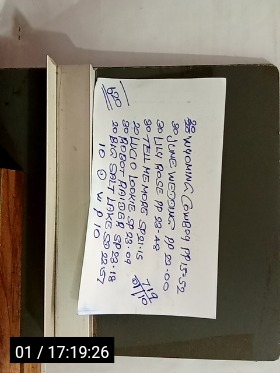 20 WYOMING COWBOY PP 15-52
20 JUNE WEDDING PP 23-00
20 LILY ROSE PP 23-48
20 TELL ME MORE SP 21-15
20 LUCIO LOOKIE SP 23-09
20 ROBOT RAIDER SP 23-18
20 BIG SALT LAKE SP 22-57
10 WP 10
01 / 17:19:26